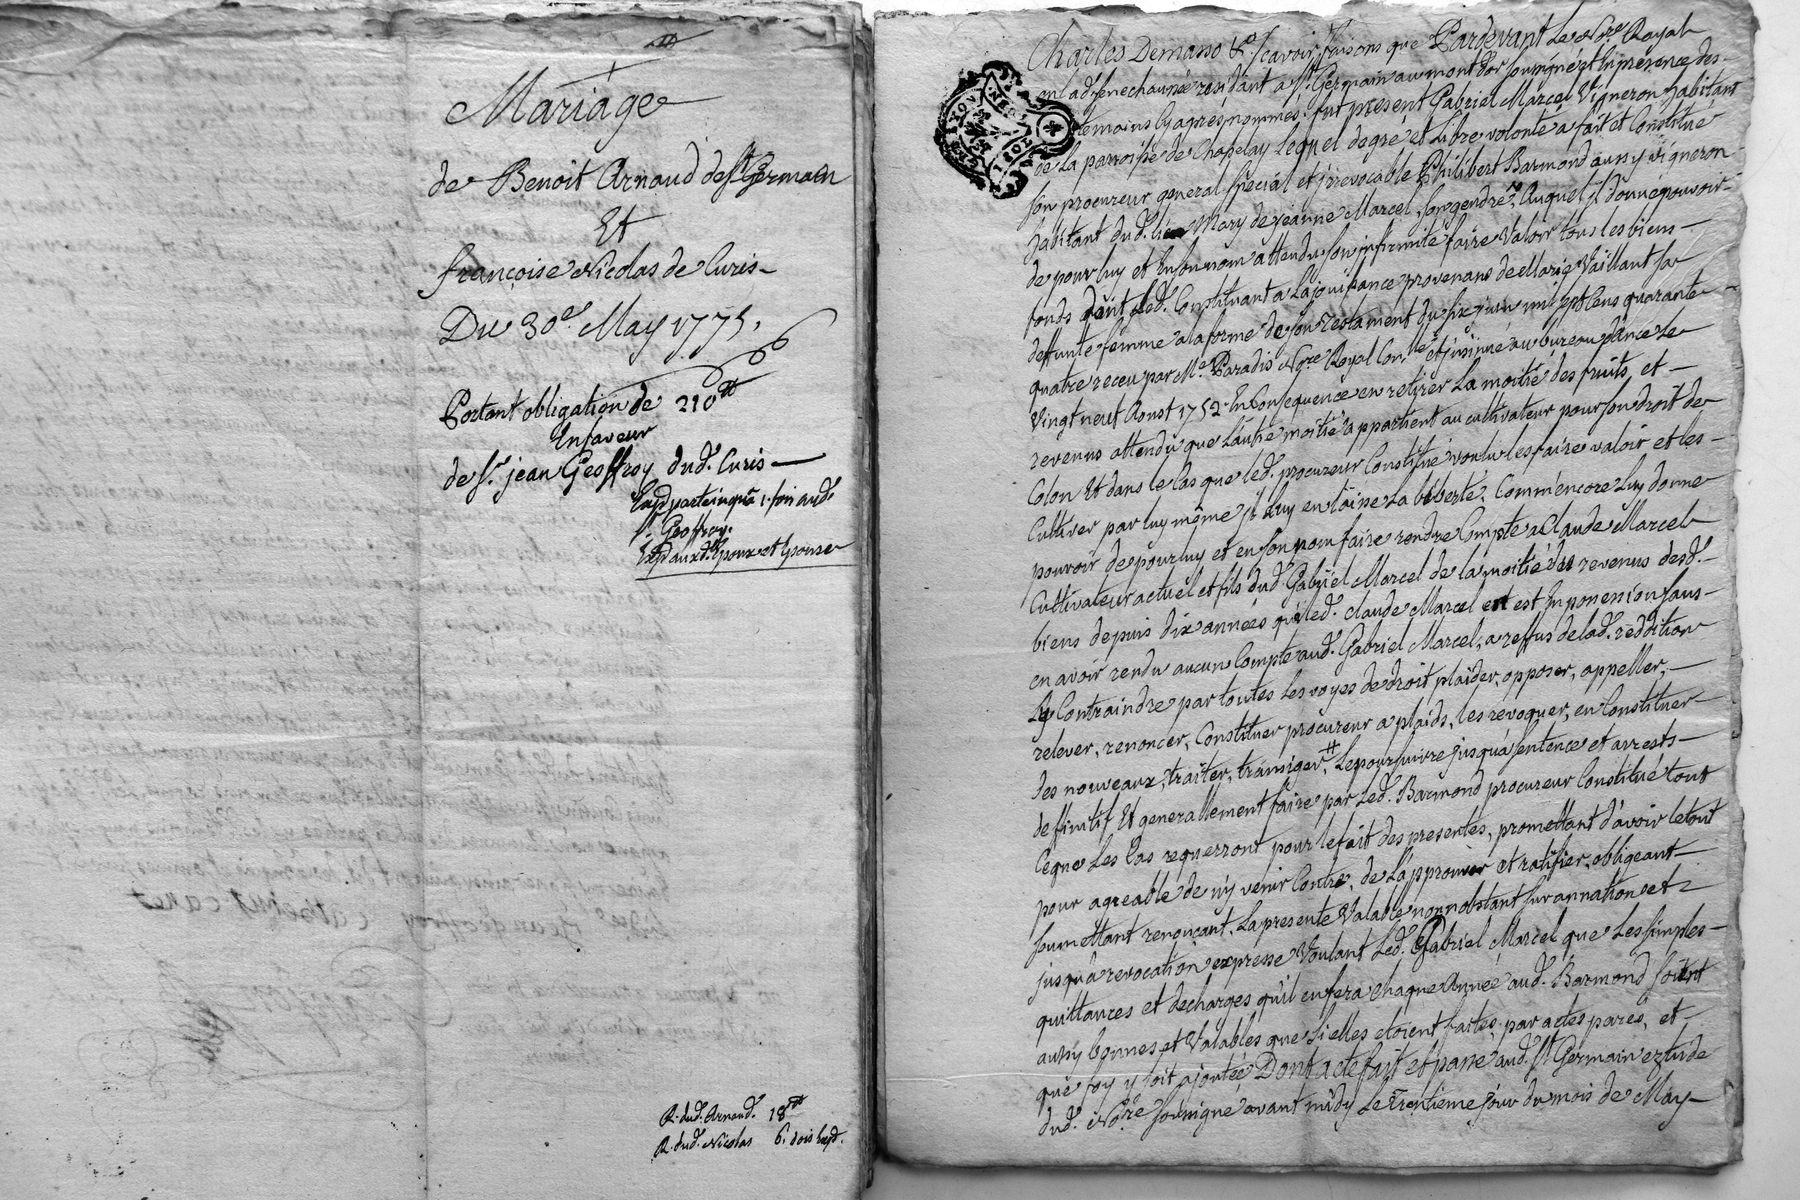 Mariage
de Benoit Arnaud de St Germain
Et
françoise Nicolas de Curis
Du 30e. May 1775.
Portant obligation de 210tt
En faveur
de Sr. jean Geoffroy dud. Curis
Geoffroy.
Exp aux d. Epoux et Epouse
R. dud. Arnaud. 18tt
R. dud. Nicolas 6. dois l'exp.
Charles Demasso &a. scavoir faisons que Pardevant Le Nre. Royal
en lad. senechaussée residant a St. Germain au mont d'or soussigné et En presence des
temoins cy apres nommés. fut present Gabriel Marcel Vigneron habitant
de La parroisse de Chasselay Lequel de gré et Libre volonté a fait et Constitué
son procureur general special et jrrevocable Philibert Barmond aussy vigneron
habitant dud. lieu Mary de jeanne Marcel, son gendre, Auquel jl donne pouvoir
de pour luy et En son nom attendu son jnfirmité faire Valoir tous les biens
fonds dont Led. Constituant a La jouissance provenans de Marie Vaillant sa
deffunte femme a la forme de son Testament du six juin mil sept Cens quarante
quatre receu par Me. Paradis Nre. Royal et jnsinué au bureau d'ance Le
Vingt neuf Aoust 1752. En Consequence en retirer La moitié des fruits et
revenus attendu que L'autre moitié appartient au cultivateur pour son droit de
Colon Et dans le Cas que led. procureur Constitué voulu les faire valoir et les
Cultiver par luy même jl Luy en laisse La liberté, Comm'encore Luy donne
pouvoir de pour luy et en son nom faire rendre Compte a Claude Marcel
Cultivateur actuel et fils dud. Gabriel Marcel de la moitié des revenus desd.
biens depuis dix années qu'led. claude Marcel est En possession sans
en avoir rendu aucun Compte aud. Gabriel Marcel, a reffus de lad. reddition
Ly Contraindre par toutes Les voyes de droit plaider, opposer, appeller,
relever, renoncer, Constituer procureur a plaids, les revoquer, en Constituer
des nouveaux, traiter, transiger, # Le poursuivre jusqu'a sentence et arrests
deffinitif Et generallement faire par Led. Barmond procureur Constitué tout
Ceque Les Cas requerront pour le fait des presentes, promettant d'avoir le tout
pour agreable de n'y venir Contre, de L'approuver et ratiffier, obligeant
soumettant renonçant. La presente Valable nonobstant surannation et
jusqu'a revocation expresse Voulant Led. Gabriel Marcel que Les simples
quittances et decharges qu'il en fera chaque Année aud. Barmond soient
aussy bonnes et Valables que si elles etoient faites par actes parés, et
que foy y soit ajoutée Dont acte fait et passé aud. St Germain Etude
dud. Nre. soussigné avant midy Le Trentieme jour du mois de May